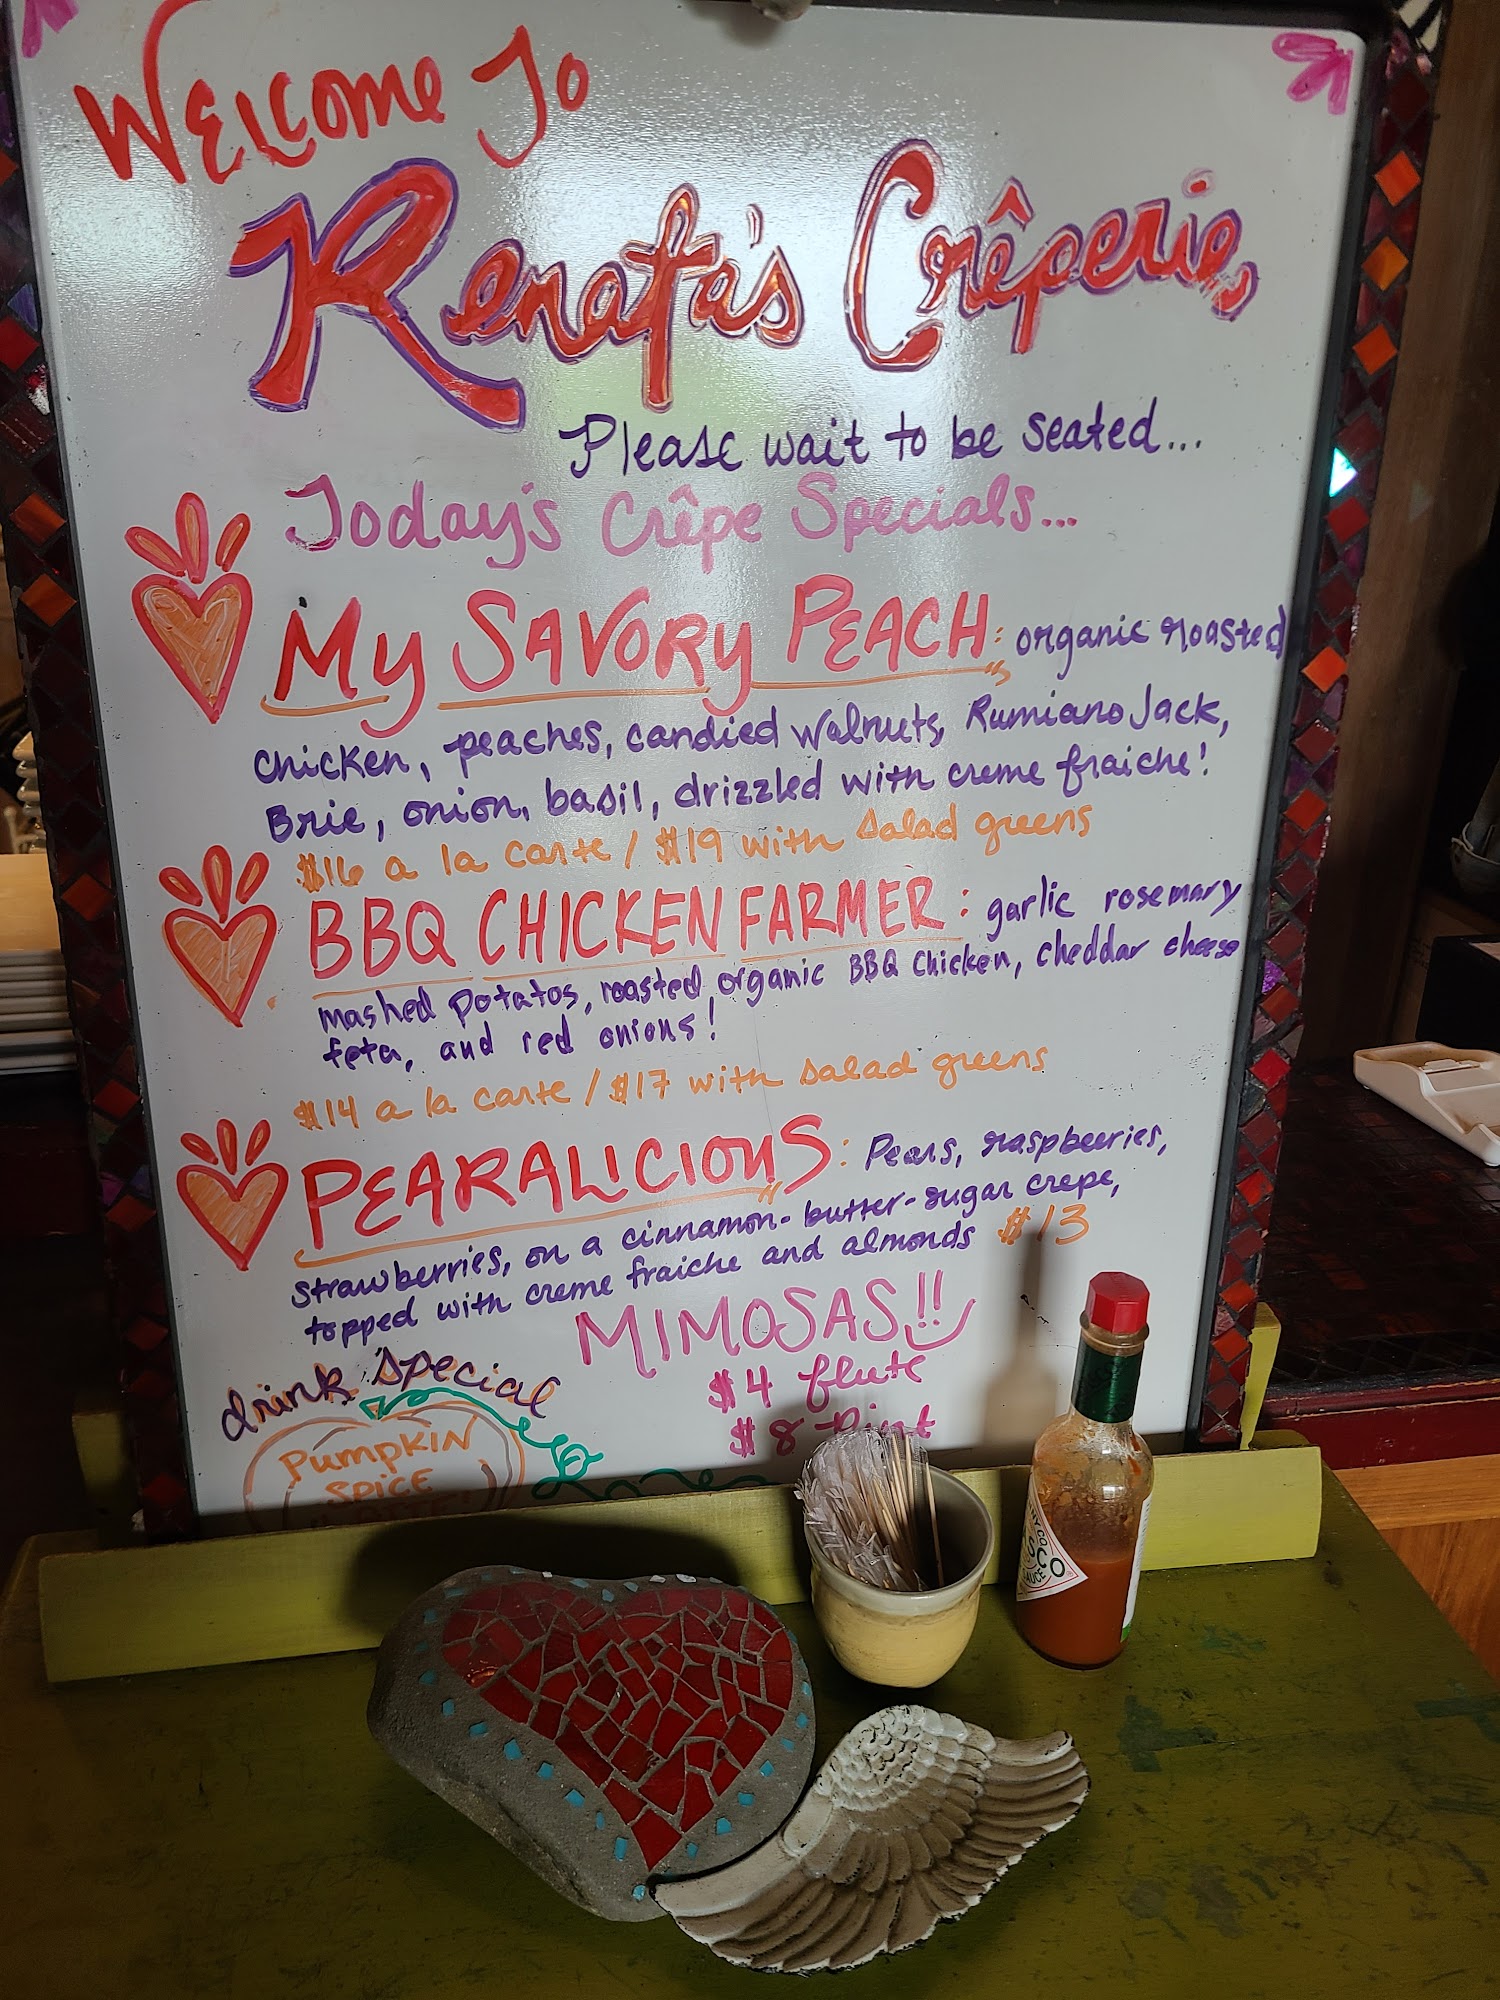 Welcome To
Renata's Crêperie
Please wait to be seated...
Today's Crêpe Specials...
My SAVORY PEACH: organic roasted
chicken, peaches, candied walnuts, Rumiano Jack,
Brie, onion, basil, drizzled with creme fraiche!
$16 a la carte / $19 with salad greens
BBQ CHICKEN FARMER: garlic rosemary
mashed potatos, roasted, organic BBQ Chicken, cheddar cheese
feta, and red onions!
$14 a la carte / $17 with salad greens
PEARALICIOUS: Pears, raspberries,
strawberries, on a cinnamon-butter-sugar crepe,
topped with creme fraiche and almonds $13
MIMOSAS!!
$4 flute
$8 Pint
drink special
PUMPKIN
SPICE